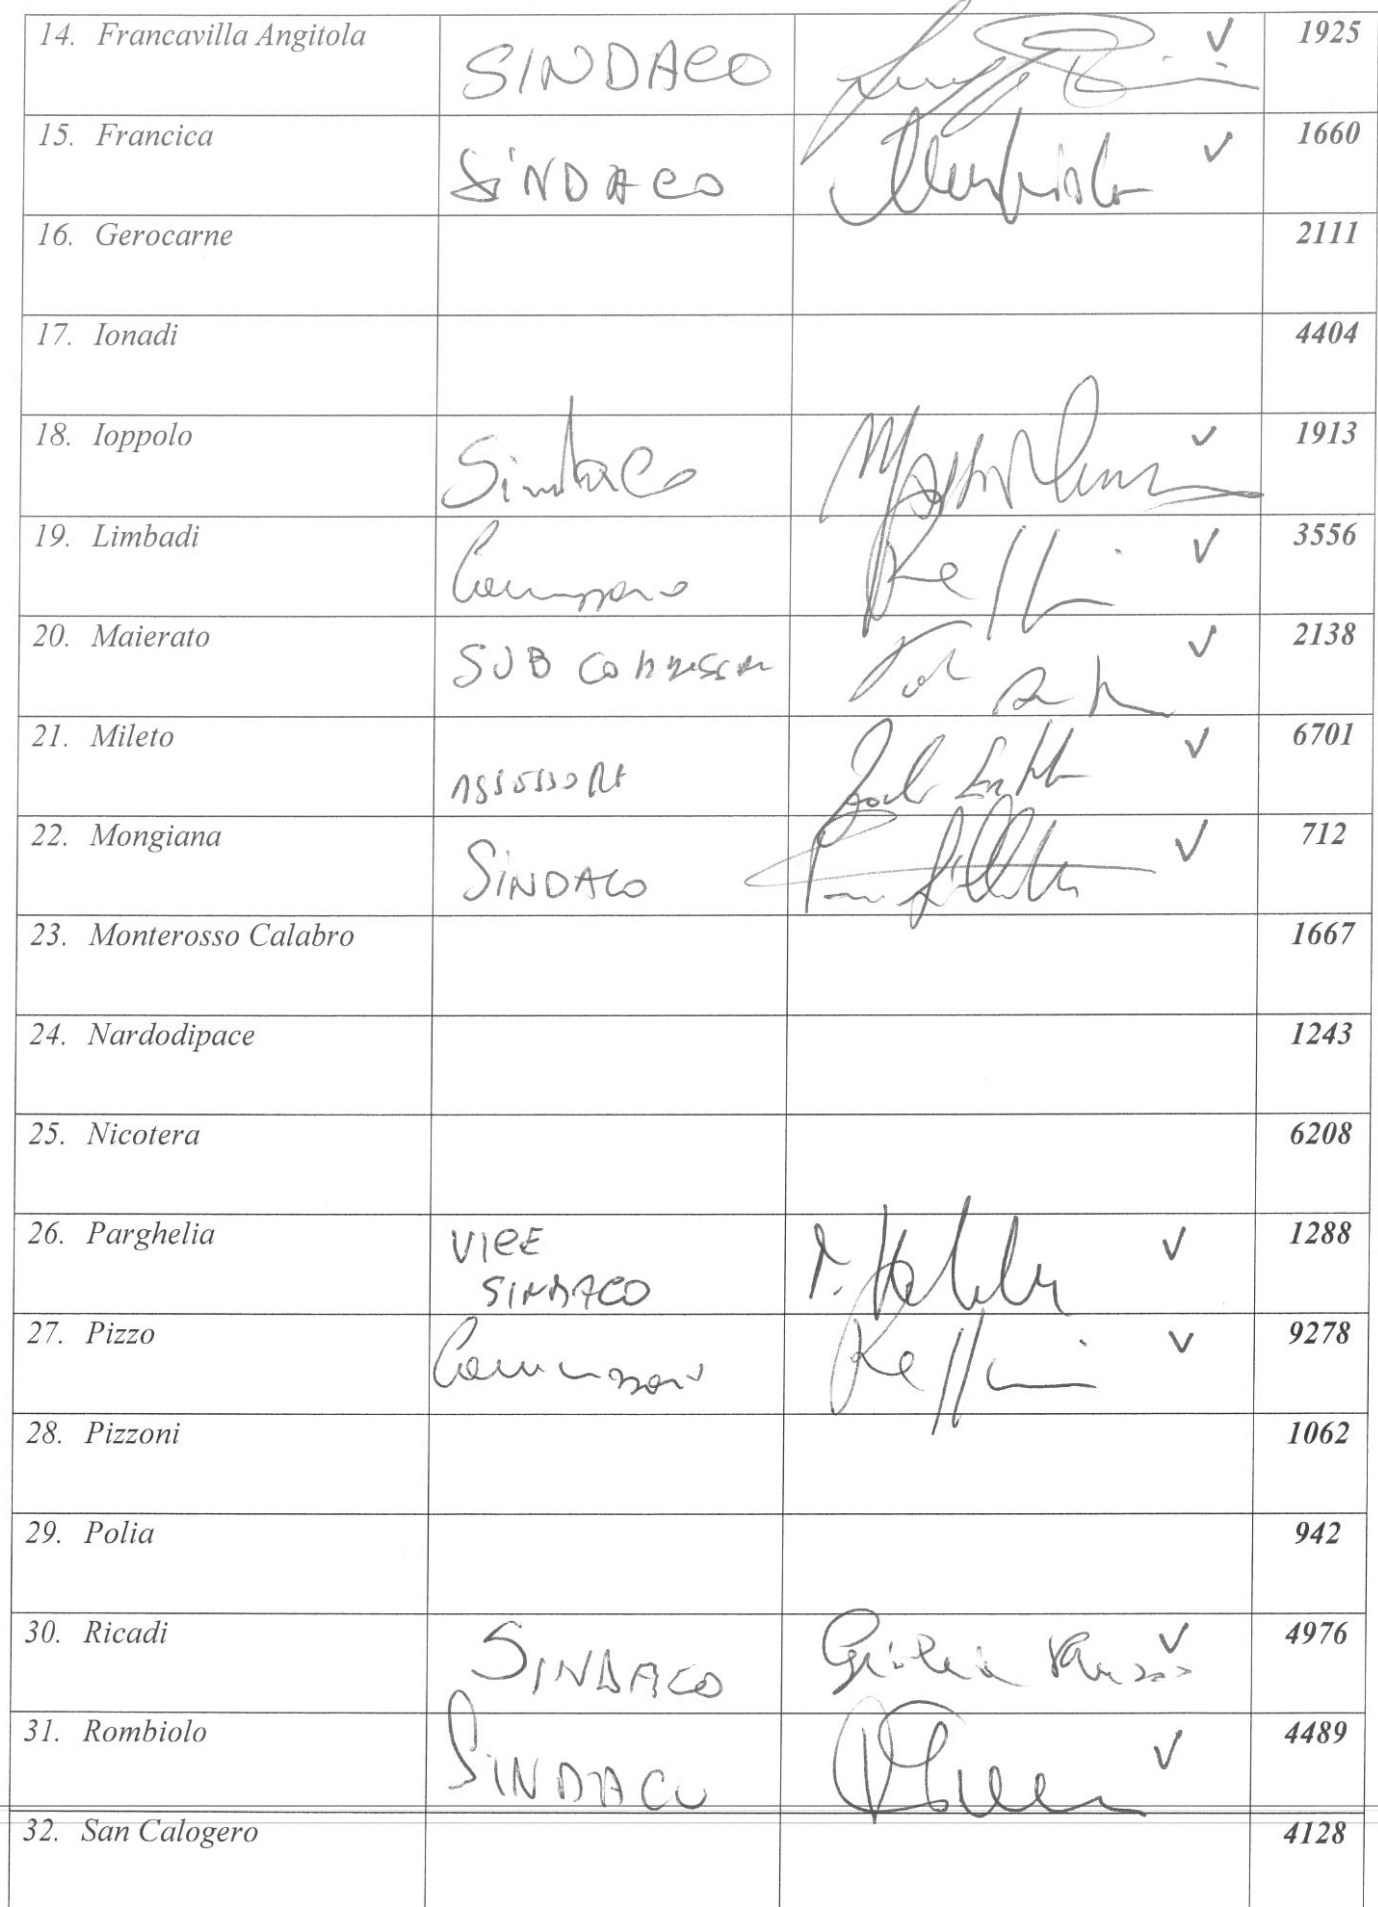 14. Francavilla Angitola SINDACO ✓ 1925
15. Francica SINDACO ✓ 1660
16. Gerocarne 2111
17. Ionadi 4404
18. Ioppolo Sindaco ✓ 1913
19. Limbadi ✓ 3556
20. Maierato SUB ✓ 2138
21. Mileto ASSESSORE ✓ 6701
22. Mongiana SINDACO ✓ 712
23. Monterosso Calabro 1667
24. Nardodipace 1243
25. Nicotera 6208
26. Parghelia VICE ✓ 1288
SINDACO
27. Pizzo ✓ 9278
28. Pizzoni 1062
29. Polia 942
30. Ricadi SINDACO ✓ 4976
31. Rombiolo SINDACO ✓ 4489
32. San Calogero 4128